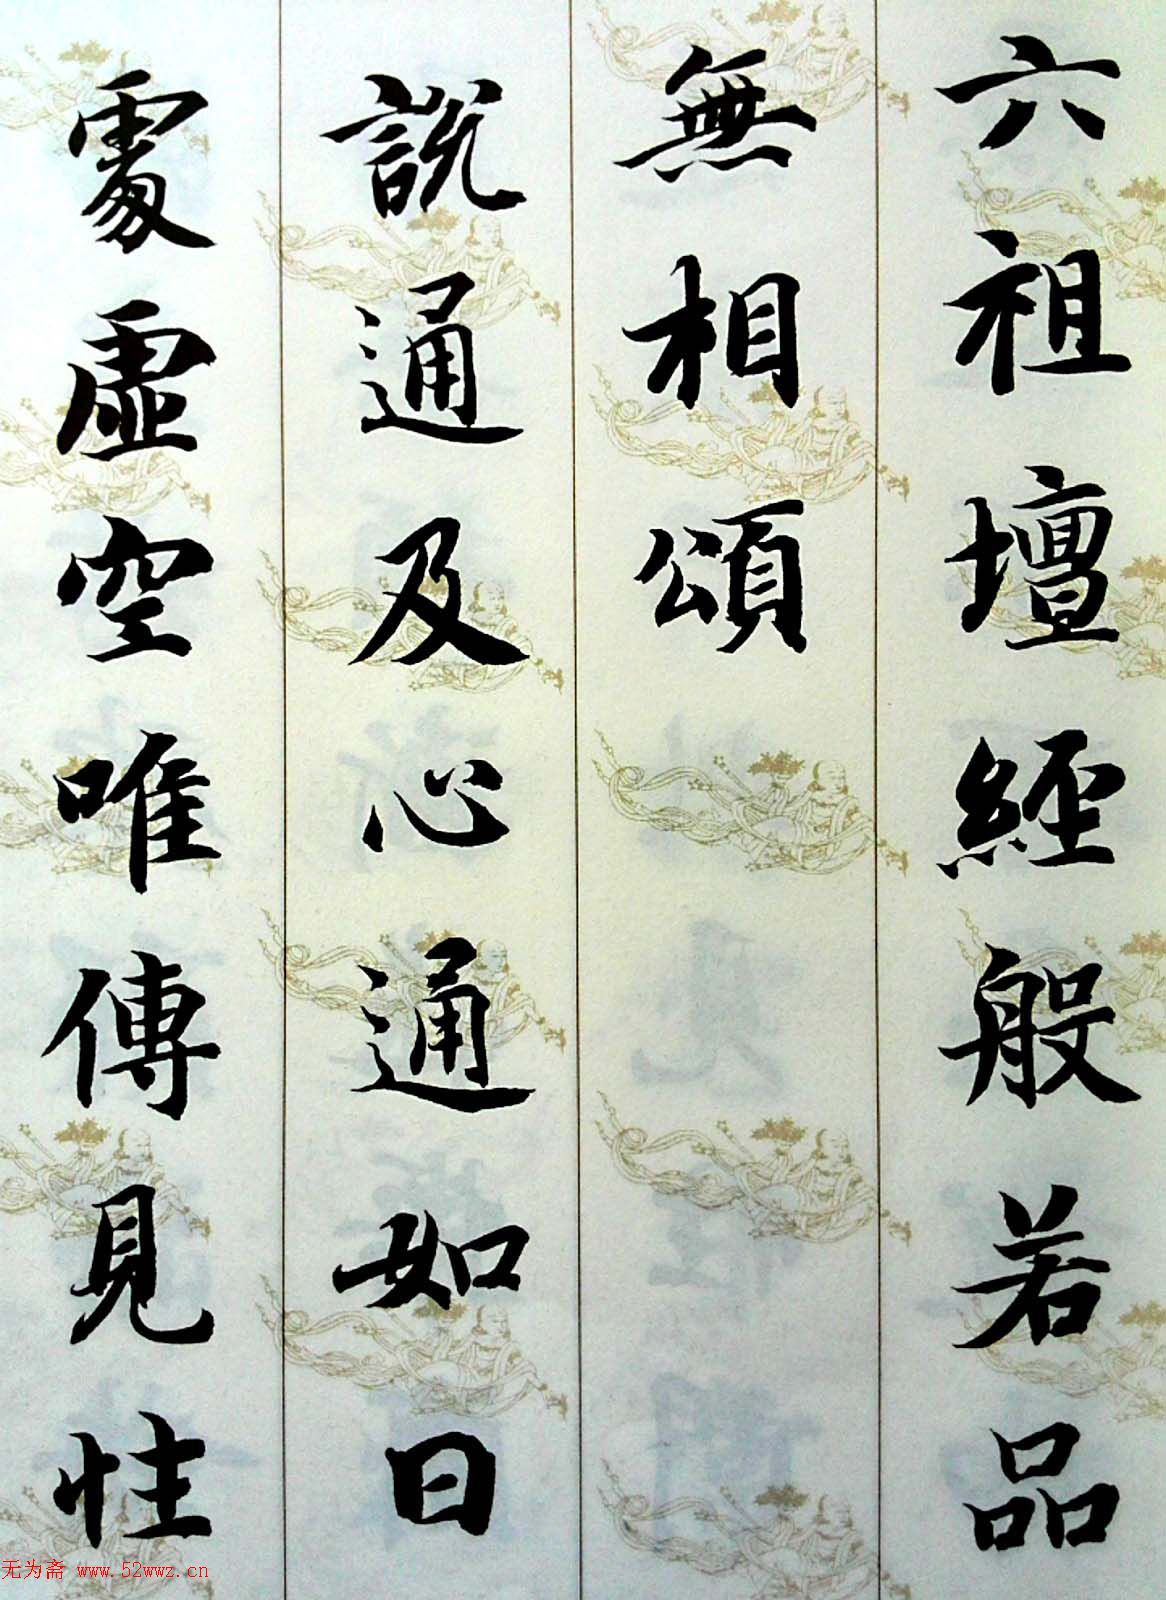 六祖壇經般若品
無相頌
說通及心通如日
處虛空唯傳見性
无为斋 www.52wwz.cn